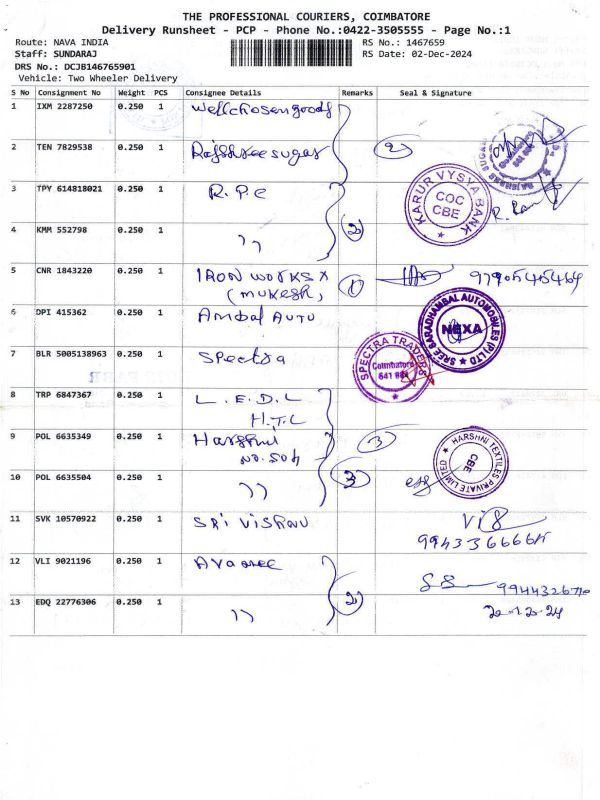 THE PROFESSIONAL COURIERS, COIMBATORE
Delivery Runsheet - PCP - Phone No.:0422-3505555 - Page No.:1
Route: NAVA INDIA RS No.: 1467659
Staff: SUNDARAJ RS Date: 02-Dec-2024
DRS No.: DCJB146765901
Vehicle: Two Wheeler Delivery
S No Consignment No Weight PCS Consignee Details Remarks Seal & Signature
1 IXM 2287250 0.250 1 Wellchosengoods
2 TEN 7829538 0.250 1 Rajshree sugar 2
3 TPY 614818021 0.250 1 R.P.C
KARUR VYSYA BANK
COC
CBE
4 KMM 552798 0.250 1 ,, 2
5 CNR 1843220 0.250 1 IRON WORKS X 1
(MUKESH,
6 DPI 415362 0.250 1 Ambal AUTO
SREE SARADHAMBAL AUTOMOBILES (P) LTD
NEXA
7 BLR 5005138963 0.250 1 Spectra
SPECTRA TRADERS
Coimbatore
8 TRP 6847367 0.250 1 L.E.D.L
H.T.L
9 POL 6635349 0.250 1 Harshni 3
NO. 504
HARSHNI TEXTILES PRIVATE LIMITED
CBE
10 POL 6635504 0.250 1 ,, 3
11 SVK 10570922 0.250 1 SRI VISHNU
12 VLI 9021196 0.250 1
13 EDQ 22776306 0.250 1 ,, 2
2-12-24